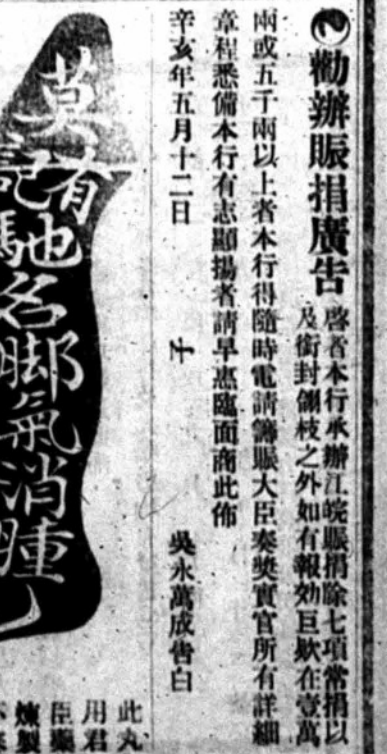 勸辦賑捐廣告
啓者本行承辦江皖賑捐除七項常捐以
及銜封翎枝之外如有報効巨欵在壹萬
兩或五千兩以上者本行得隨時電請籌賑大臣奏奬實官所有詳細
章程悉備本行有志顯揚者請早惠臨面商此佈
辛亥年五月十二日 吳永萬成告白
莫有
記馳名脚氣消腫
此丸
用君
臣藥
煉製